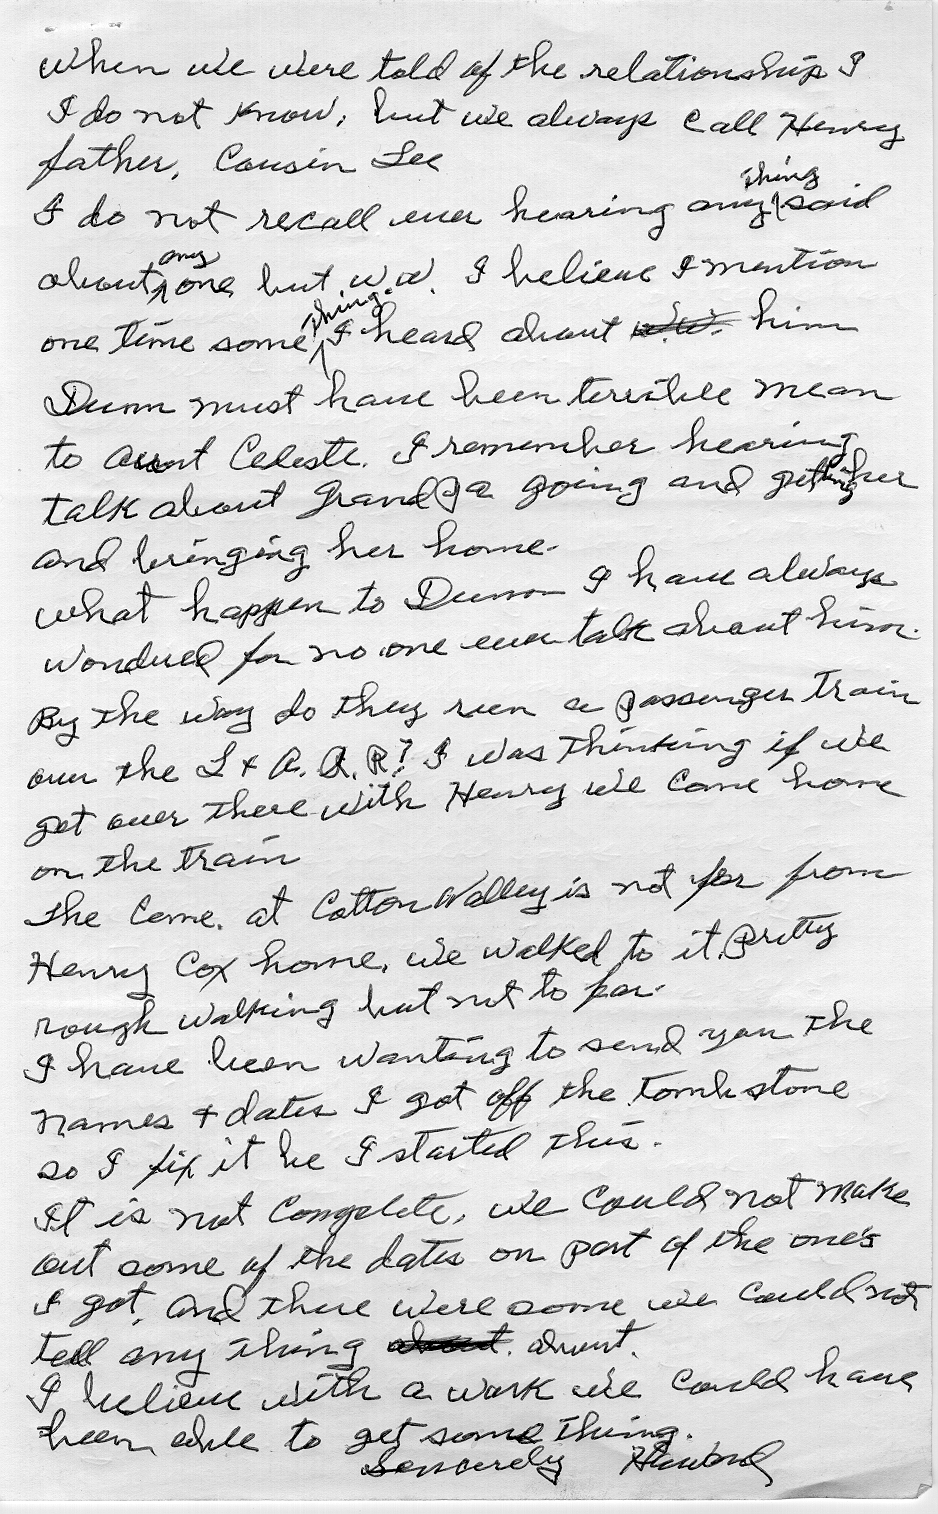 when we were told of the relationship I
I do not know, but we always call Henry
father, Cousin Lee
I do not recall ever hearing any thing said
about any one but W.W. I believe I mention
one time some thing I heard about W.W. him
Dunn must have been terrible mean
to Aunt Celeste. I remember hearing
talk about Grand Pa going and getting her
and bringing her home.
what happen to Dunn I have always
wondred for no one ever talk about him.
By the way do they run a passenger train
over the L & A. R. R? I was thinking if we
get over there with Henry we come home
on the train
The Ceme. at Cotton Valley is not far from
Henry Cox home, we walked to it. Pretty
rough walking but not to far.
I have been wanting to send you the
names & dates I got off the tombstone
so I fix it he I started this.
It is not complete, we could not make
out some of the dates on part of the one's
I got, and there were some we could not
tell any thing about. about.
I believe with a work we could have
been able to get some thing.
Sencerely Howard